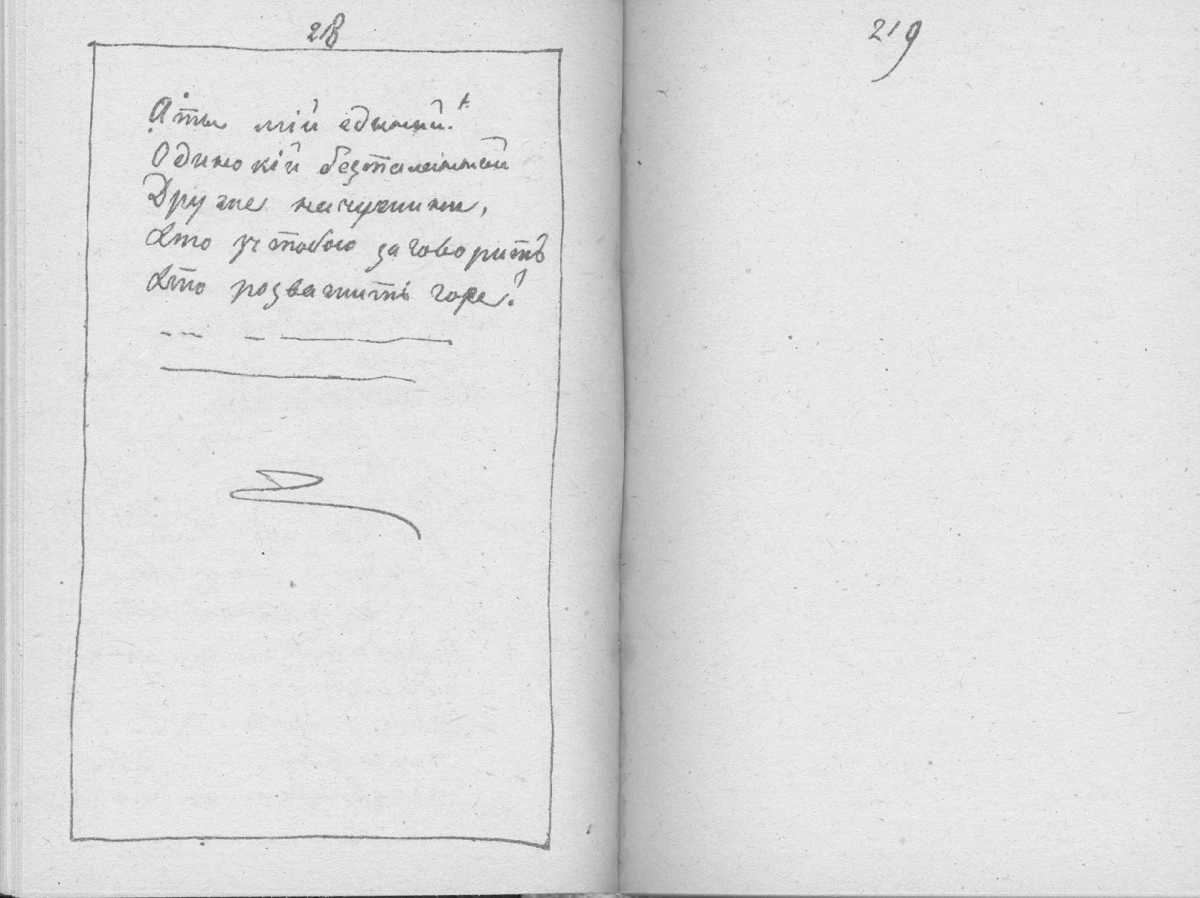 218
А ты мій єдыный!
Одинокій безталанный
Друже
Хто зъ тобою заговорить
Хто розважить горе!
219